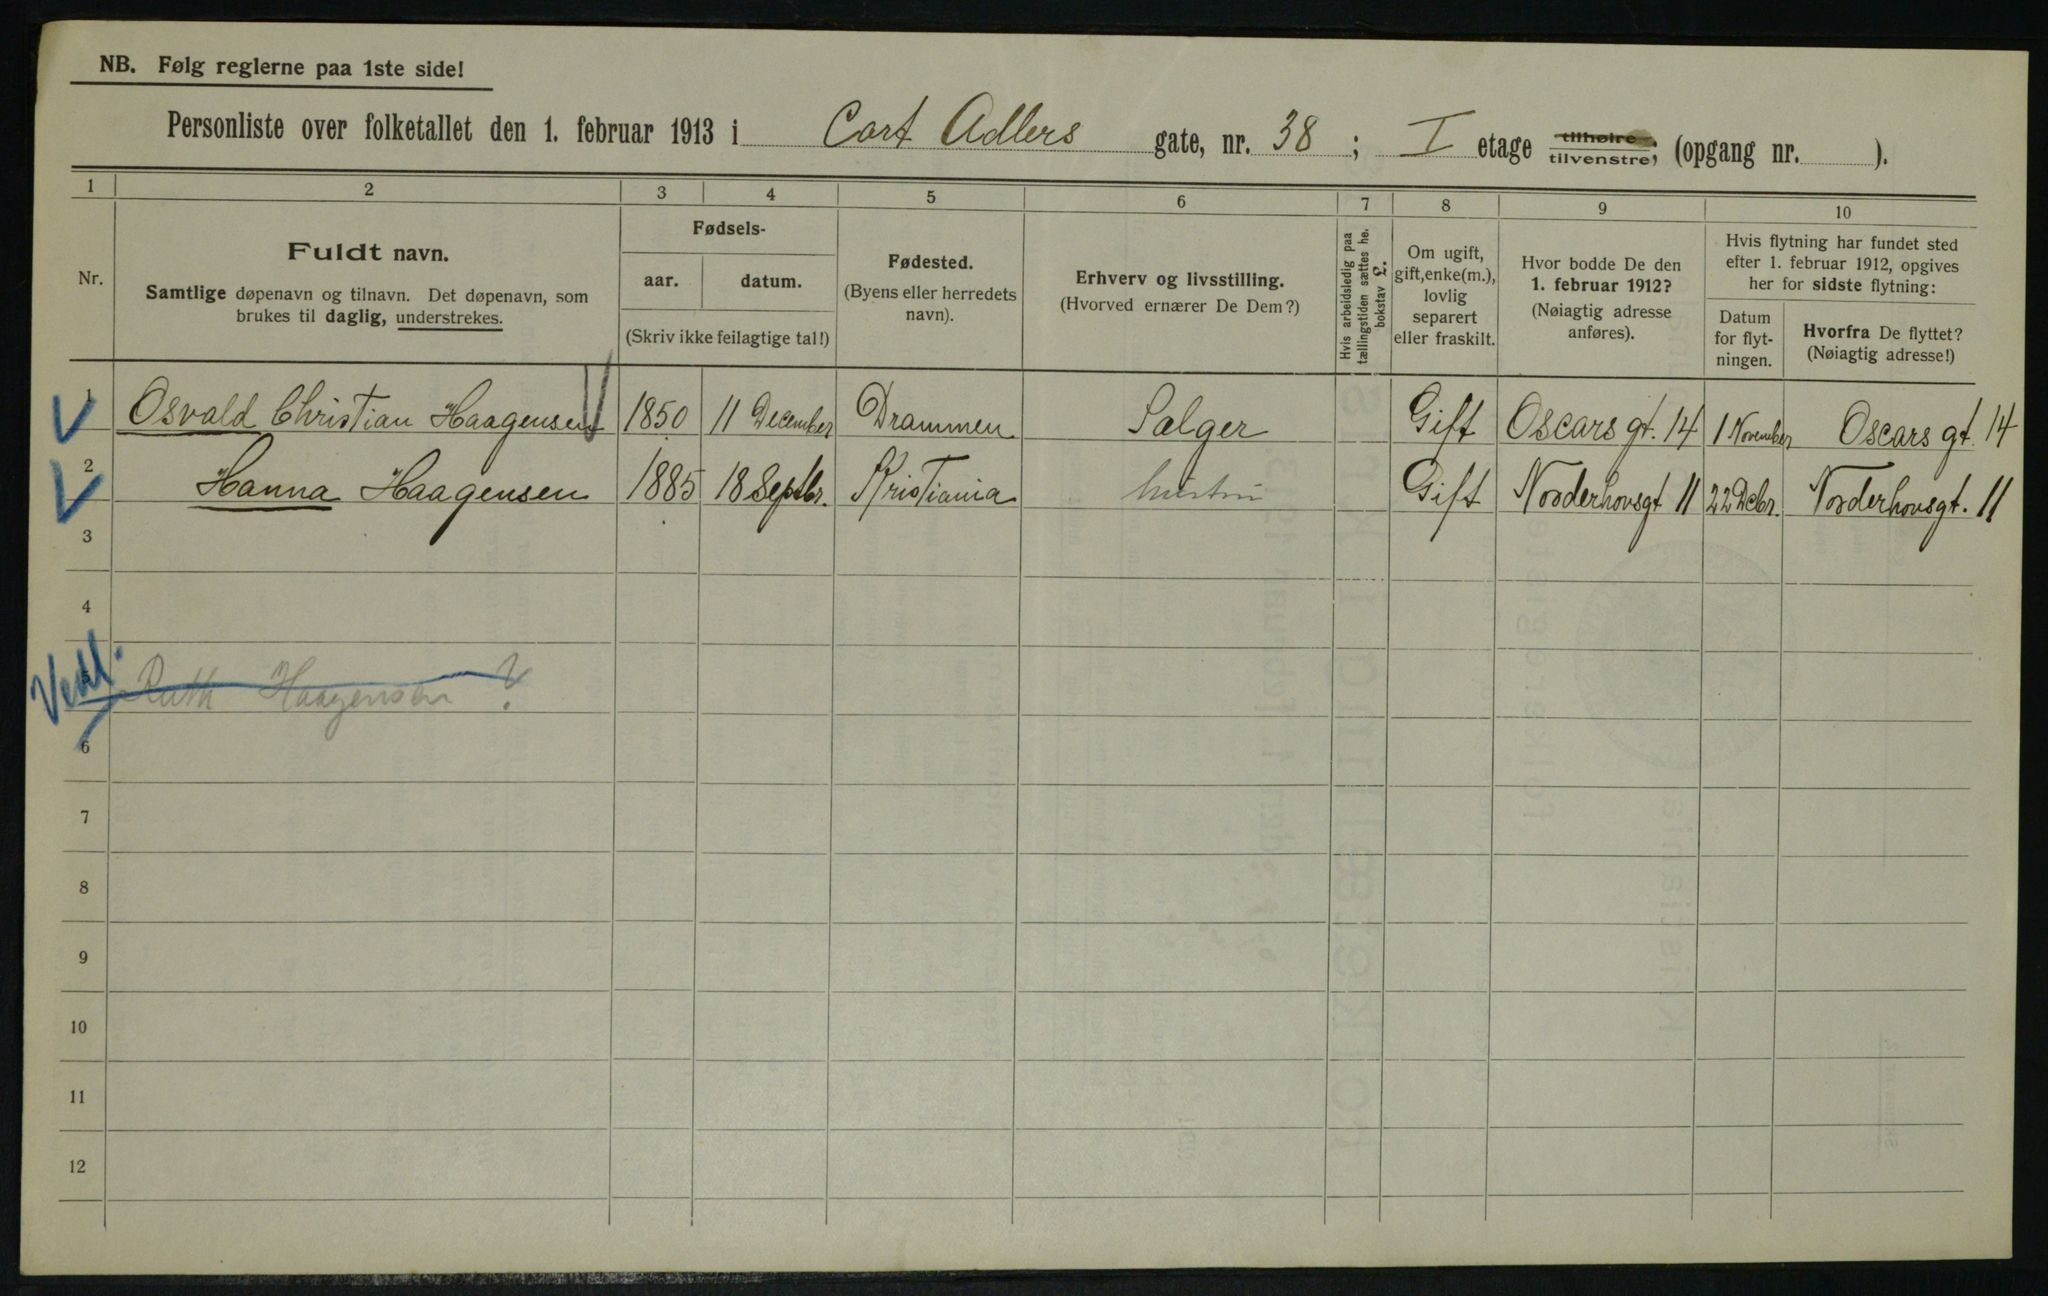 NB. Følg reglerne paa 1ste side!
Personliste over folketallet den 1. februar 1913 i Cort Adlers gate, nr. 38 ; I etage tilhøire tilvenstre, (opgang nr. ).
1 2 3 4 5 6 7 8 9 10
Nr.
Fuldt navn.
Samtlige døpenavn og tilnavn. Det døpenavn, som
brukes til daglig, understrekes.
Fødsels-
aar. datum.
(Skriv ikke feilagtige tal!)
Fødested.
(Byens eller herredets
navn).
Erhverv og livsstilling.
(Hvorved ernærer De Dem?)
Hvis arbeidsledig paa
tællingstiden sættes he.
bokstav £.
Om ugift,
gift, enke(m.),
lovlig
separert
eller fraskilt.
Hvor bodde De den
1. februar 1912?
(Nøiagtig adresse
anføres).
Hvis flytning har fundet sted
efter 1. februar 1912, opgives
her for sidste flytning:
Datum
for flyt-
ningen.
Hvorfra De flyttet?
(Nøiagtig adresse!)
1 Osvald Christian Haagensen 1850 11 December Drammen Sælger Gift Oscars gt. 14 1 November Oscars gt. 14
2 Hanna Haagensen 1885 18 Septbr. Kristiania hustru Gift Norderhovsgt 11 22 Decbr. Norderhovsgt. 11
3
4
5 Ruth Haagensen ?
6
7
8
9
10
11
12